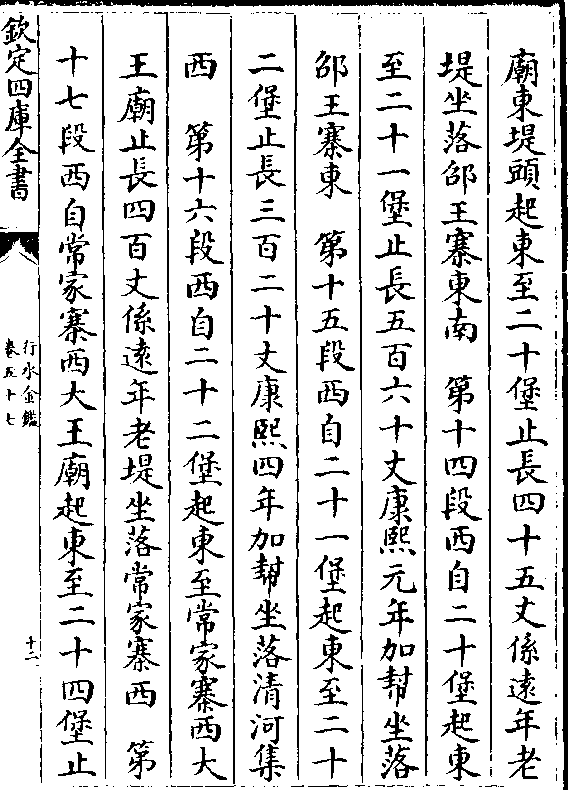 廟東堤頭起東至二十堡止長四十五丈係遠年老
堤坐落邵王寨東南　第十四段西自二十堡起東
至二十一堡止長五百六十丈康熙元年加幇坐落
邵王寨東　第十五段西自二十一堡起東至二十
二堡止長三百二十丈康熙四年加幇坐落清河集
西　第十六段西自二十二堡起東至常家寨西大
王廟止長四百丈係遠年老堤坐落常家寨西　第
十七段西自常家寨西大王廟起東至二十四堡止
欽定四庫全書
行水金鑑
卷五十七
十二